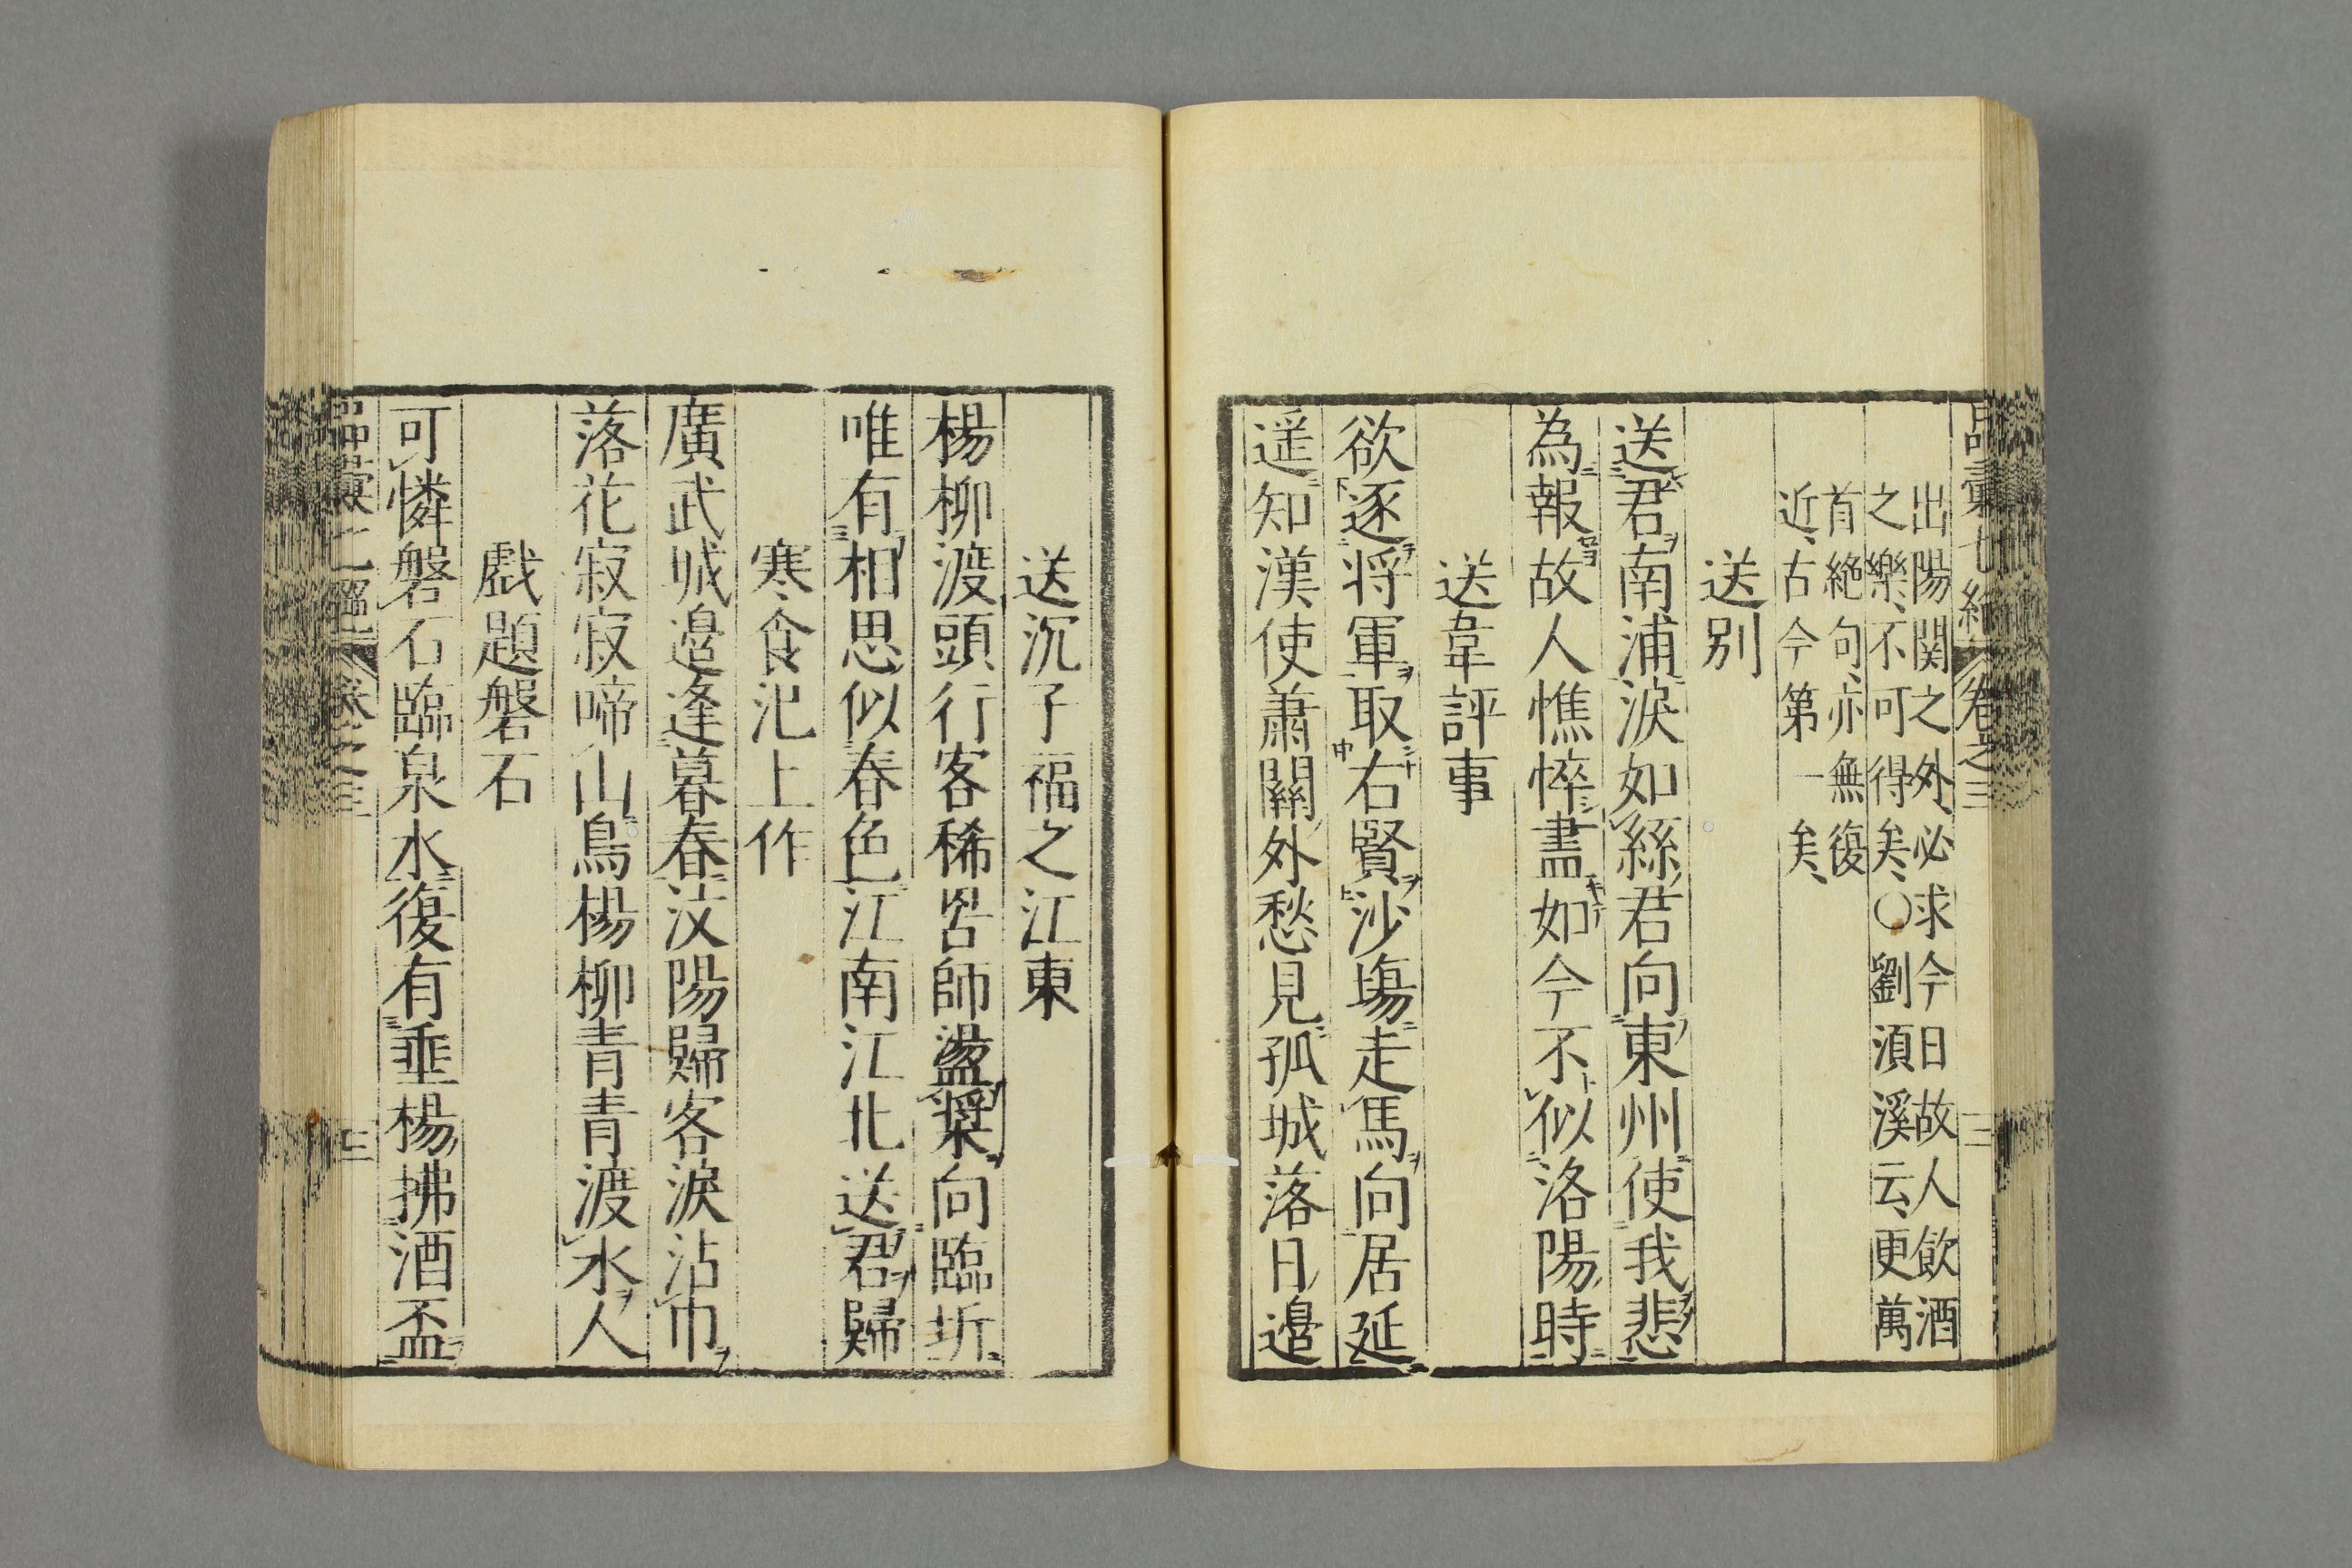 品彙七絶 卷之三 三
出陽関之外、必求今日故人飲酒
之樂、不可得矣、〇劉湏溪云、更萬
首絶句、亦無復
近、古今第一矣、
送别
送君南浦淚如絲君向東州使我悲
為報故人憔悴盡如今不似洛陽時
送韋評事
欲逐将軍取右賢沙塲走馬向居延
遥知漢使蕭關外愁見孤城落日邉
送沉子福之江東
楊柳渡頭行客稀罟師盪槳向臨圻
唯有相思似春色江南江北送君歸
寒食汜上作
廣武城邉逢暮春汶陽歸客淚沾巾
落花寂寂啼山鳥楊柳青青渡水人
戱題磐石
可憐磐石臨泉水復有垂楊拂酒盃
品彙七絶 卷之三 三